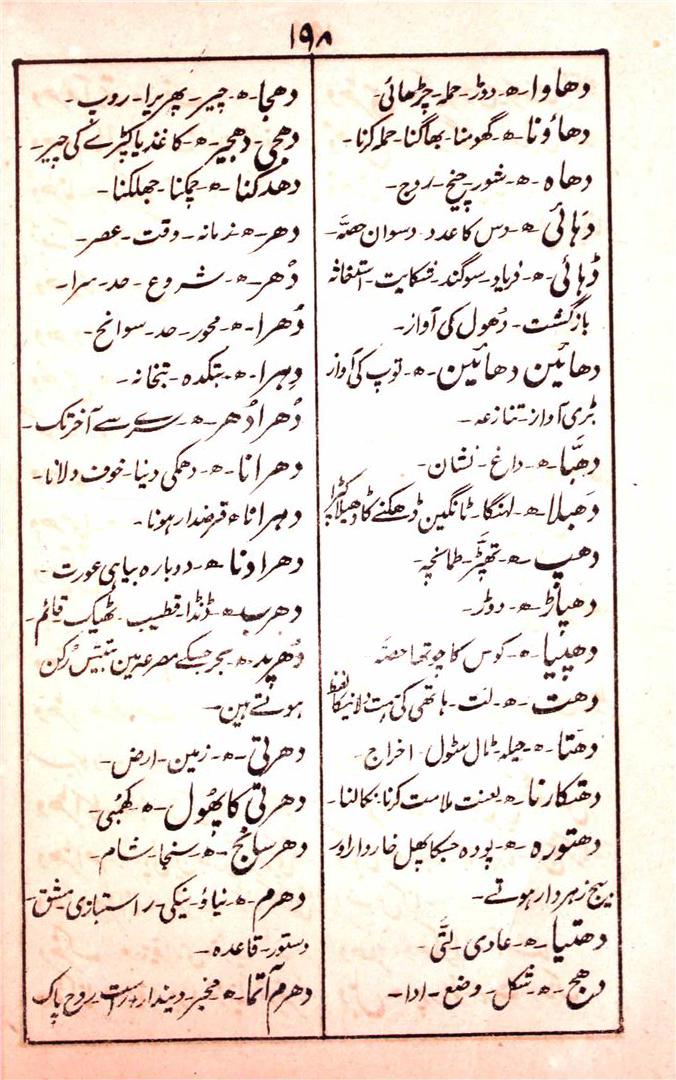 ۱۹۸
دھاوا۔ ھ۔ دوڑ۔ حملہ۔ چڑھائی۔
دھاؤنا۔ ھ۔ گھومنا۔ بھاگنا۔ حملہ کرنا۔
دھاہ۔ ھ۔ شور۔ چیخ۔
دَہائی۔ ھ۔ دس کا عدد۔ دسوان حصّہ۔
دُہائی۔ ھ۔ فریاد۔ سوگند۔ شکایت۔ استغاثہ
بازگشت۔ دُھول کی آواز۔
دھائین دھائین۔ ھ۔ توپ کی آواز
بڑی آواز۔ تنازعہ۔
دھبّا۔ ھ۔ داغ۔ نشان۔
دَھبلا۔ ھ۔ لہنگا۔ ٹانگین ڈھکنے کا ڈھیلا کپڑا
دھپ۔ ھ۔ تھپّڑ۔ طمانچہ۔
دھپاڑ۔ ھ۔ دوڑ۔
دھپیا۔ ھ۔ کوس کا چوتھا حصّہ
دھت۔ ھ۔ لت۔ ہاتھی کی
دھتا۔ ھ۔ حیلہ۔ ٹال مٹول۔ اخراج۔
دھتکارنا۔ ھ۔ لعنت ملامت کرنا۔ نکالنا۔
دھتورہ۔ ھ۔ پودہ جسکا پھل خاردار اور
بیج زہردار ہوتے۔
دھتیا۔ ھ۔ عادی۔ لتّی۔
دھج۔ ھ۔ شکل۔ وضع۔ ادا۔
دھجا۔ ھ۔ چیر۔ پھریرا۔ روپ۔
دھجی۔ دھجیر۔ ھ۔ کاغذ یا کپڑے کی چیر۔
دھدکنا۔ ھ۔ چمکنا۔ جھلکنا۔
دھر۔ ھ۔ زمانہ۔ وقت۔ عصر۔
دُھر۔ ھ۔ شروع۔ حد۔ سرا۔
دُھرا۔ ھ۔ محور۔ حد۔ سوانح۔
دِہرا۔ ھ۔ بتکدہ۔ بتخانہ۔
دُھرا دُھر۔ ھ۔ سرے سے آخر تک۔
دھرانا۔ ھ۔ دھمکی دینا۔ خوف دلانا۔
دہرانا۔ ھ قرضدار ہونا۔
دھرادنا۔ ھ۔ دوبارہ بیاہی عورت۔
دھرب۔ ھ۔ ڈنڈا۔ قطیب۔ ٹھیک۔ قائم۔
دُھرپد۔ ھ۔ بحر جسکے مصرعہ مین تیئس رکن
ہوتے ہین۔
دھرتی۔ ھ۔ زمین۔ ارض۔
دھرتی کا پھُول۔ ھ۔ کھُمبی۔
دھرسانجھ۔ ھ۔ سنجا۔ شام۔
دھرم۔ ھ۔ نیاؤ۔ نیکی۔ راستبازی۔ مشق۔
دستور۔ قاعدہ۔
دھرم آتما۔ ھ۔ مخیر۔ دیندار۔ راست۔ روح پاک